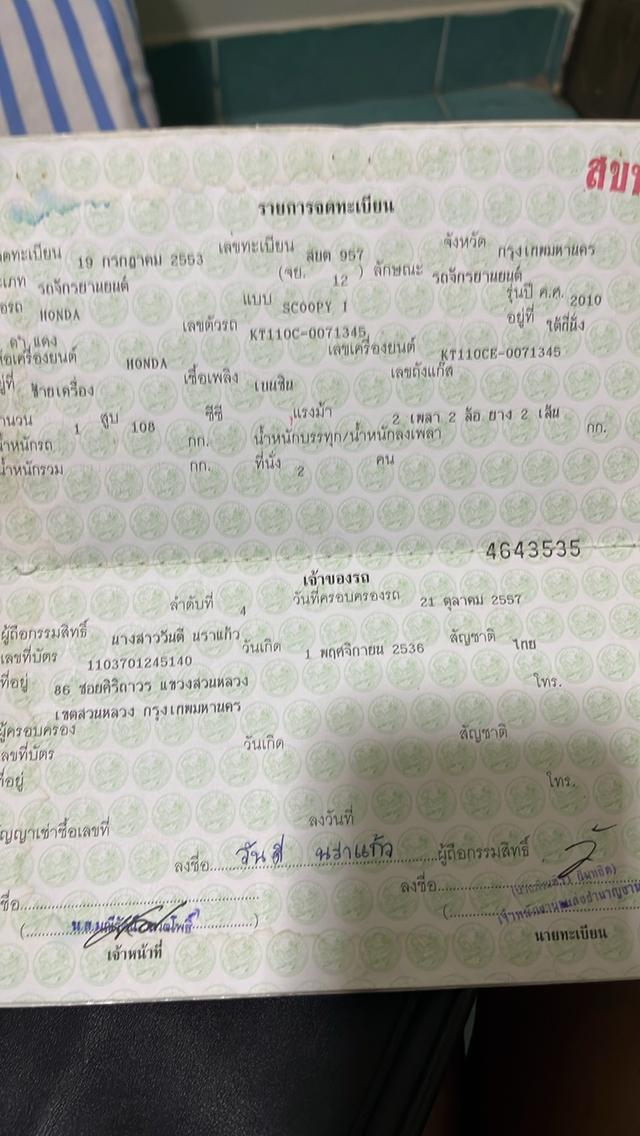 สบ
รายการจดทะเบียน
จดทะเบียน 19 กรกฎาคม 2553 เลขทะเบียน สบต 957 จังหวัด กรุงเทพมหานคร
รถจักรยานยนต์ (จย. 12 ) ลักษณะ รถจักรยานยนต์
HONDA แบบ SCOOPY I รุ่นปี ค.ศ. 2010
ดำ,แดง เลขตัวรถ KT110C-0071345 อยู่ที่ ใต้ที่นั่ง
เครื่องยนต์ HONDA เลขเครื่องยนต์ KT110CE-0071345
ซ้ายเครื่อง เชื้อเพลิง เบนซิน เลขถังแก๊ส
1 สูบ 108 ซีซี แรงม้า 2 เพลา 2 ล้อ ยาง 2 เส้น
น้ำหนักรถ กก. น้ำหนักบรรทุก/น้ำหนักลงเพลา กก.
น้ำหนักรวม กก. ที่นั่ง 2 คน
4643535
เจ้าของรถ
ลำดับที่ 4 วันที่ครอบครองรถ 21 ตุลาคม 2557
ผู้ถือกรรมสิทธิ์ นางสาววันดี นราแก้ว
เลขที่บัตร 1103701245140 วันเกิด 1 พฤศจิกายน 2536 สัญชาติ ไทย
ที่อยู่ 86 ซอยศิริถาวร แขวงสวนหลวง โทร.
เขตสวนหลวง กรุงเทพมหานคร
ผู้ครอบครอง
เลขที่บัตร วันเกิด สัญชาติ
ที่อยู่ โทร.
สัญญาเช่าซื้อเลขที่ ลงวันที่
ลงชื่อ วันดี นราแก้ว ผู้ถือกรรมสิทธิ์
ลงชื่อ
เจ้าหน้าที่
นายทะเบียน